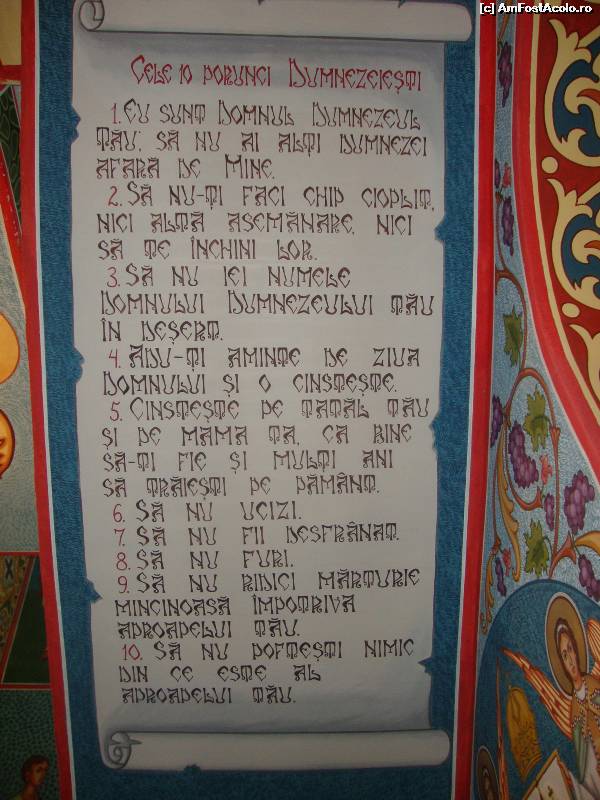 [c] AmFostAcolo.ro
Cele 10 porunci Dumnezeiești
1. Eu sunt Domnul Dumnezeul
Tău; să nu ai alți dumnezei
afară de Mine.
2. Să nu-ți faci chip cioplit,
nici altă asemănare, nici
să te închini lor.
3. Să nu iei numele
Domnului Dumnezeului tău
în deșert.
4. Adu-ți aminte de ziua
Domnului și o cinstește.
5. Cinstește pe tatăl tău
și pe mama ta, ca bine
să-ți fie și mulți ani
să trăiești pe pământ.
6. Să nu ucizi.
7. Să nu fii desfrânat.
8. Să nu furi.
9. Să nu ridici mărturie
mincinoasă împotriva
aproapelui tău.
10. Să nu poftești nimic
din ce este al
aproapelui tău.